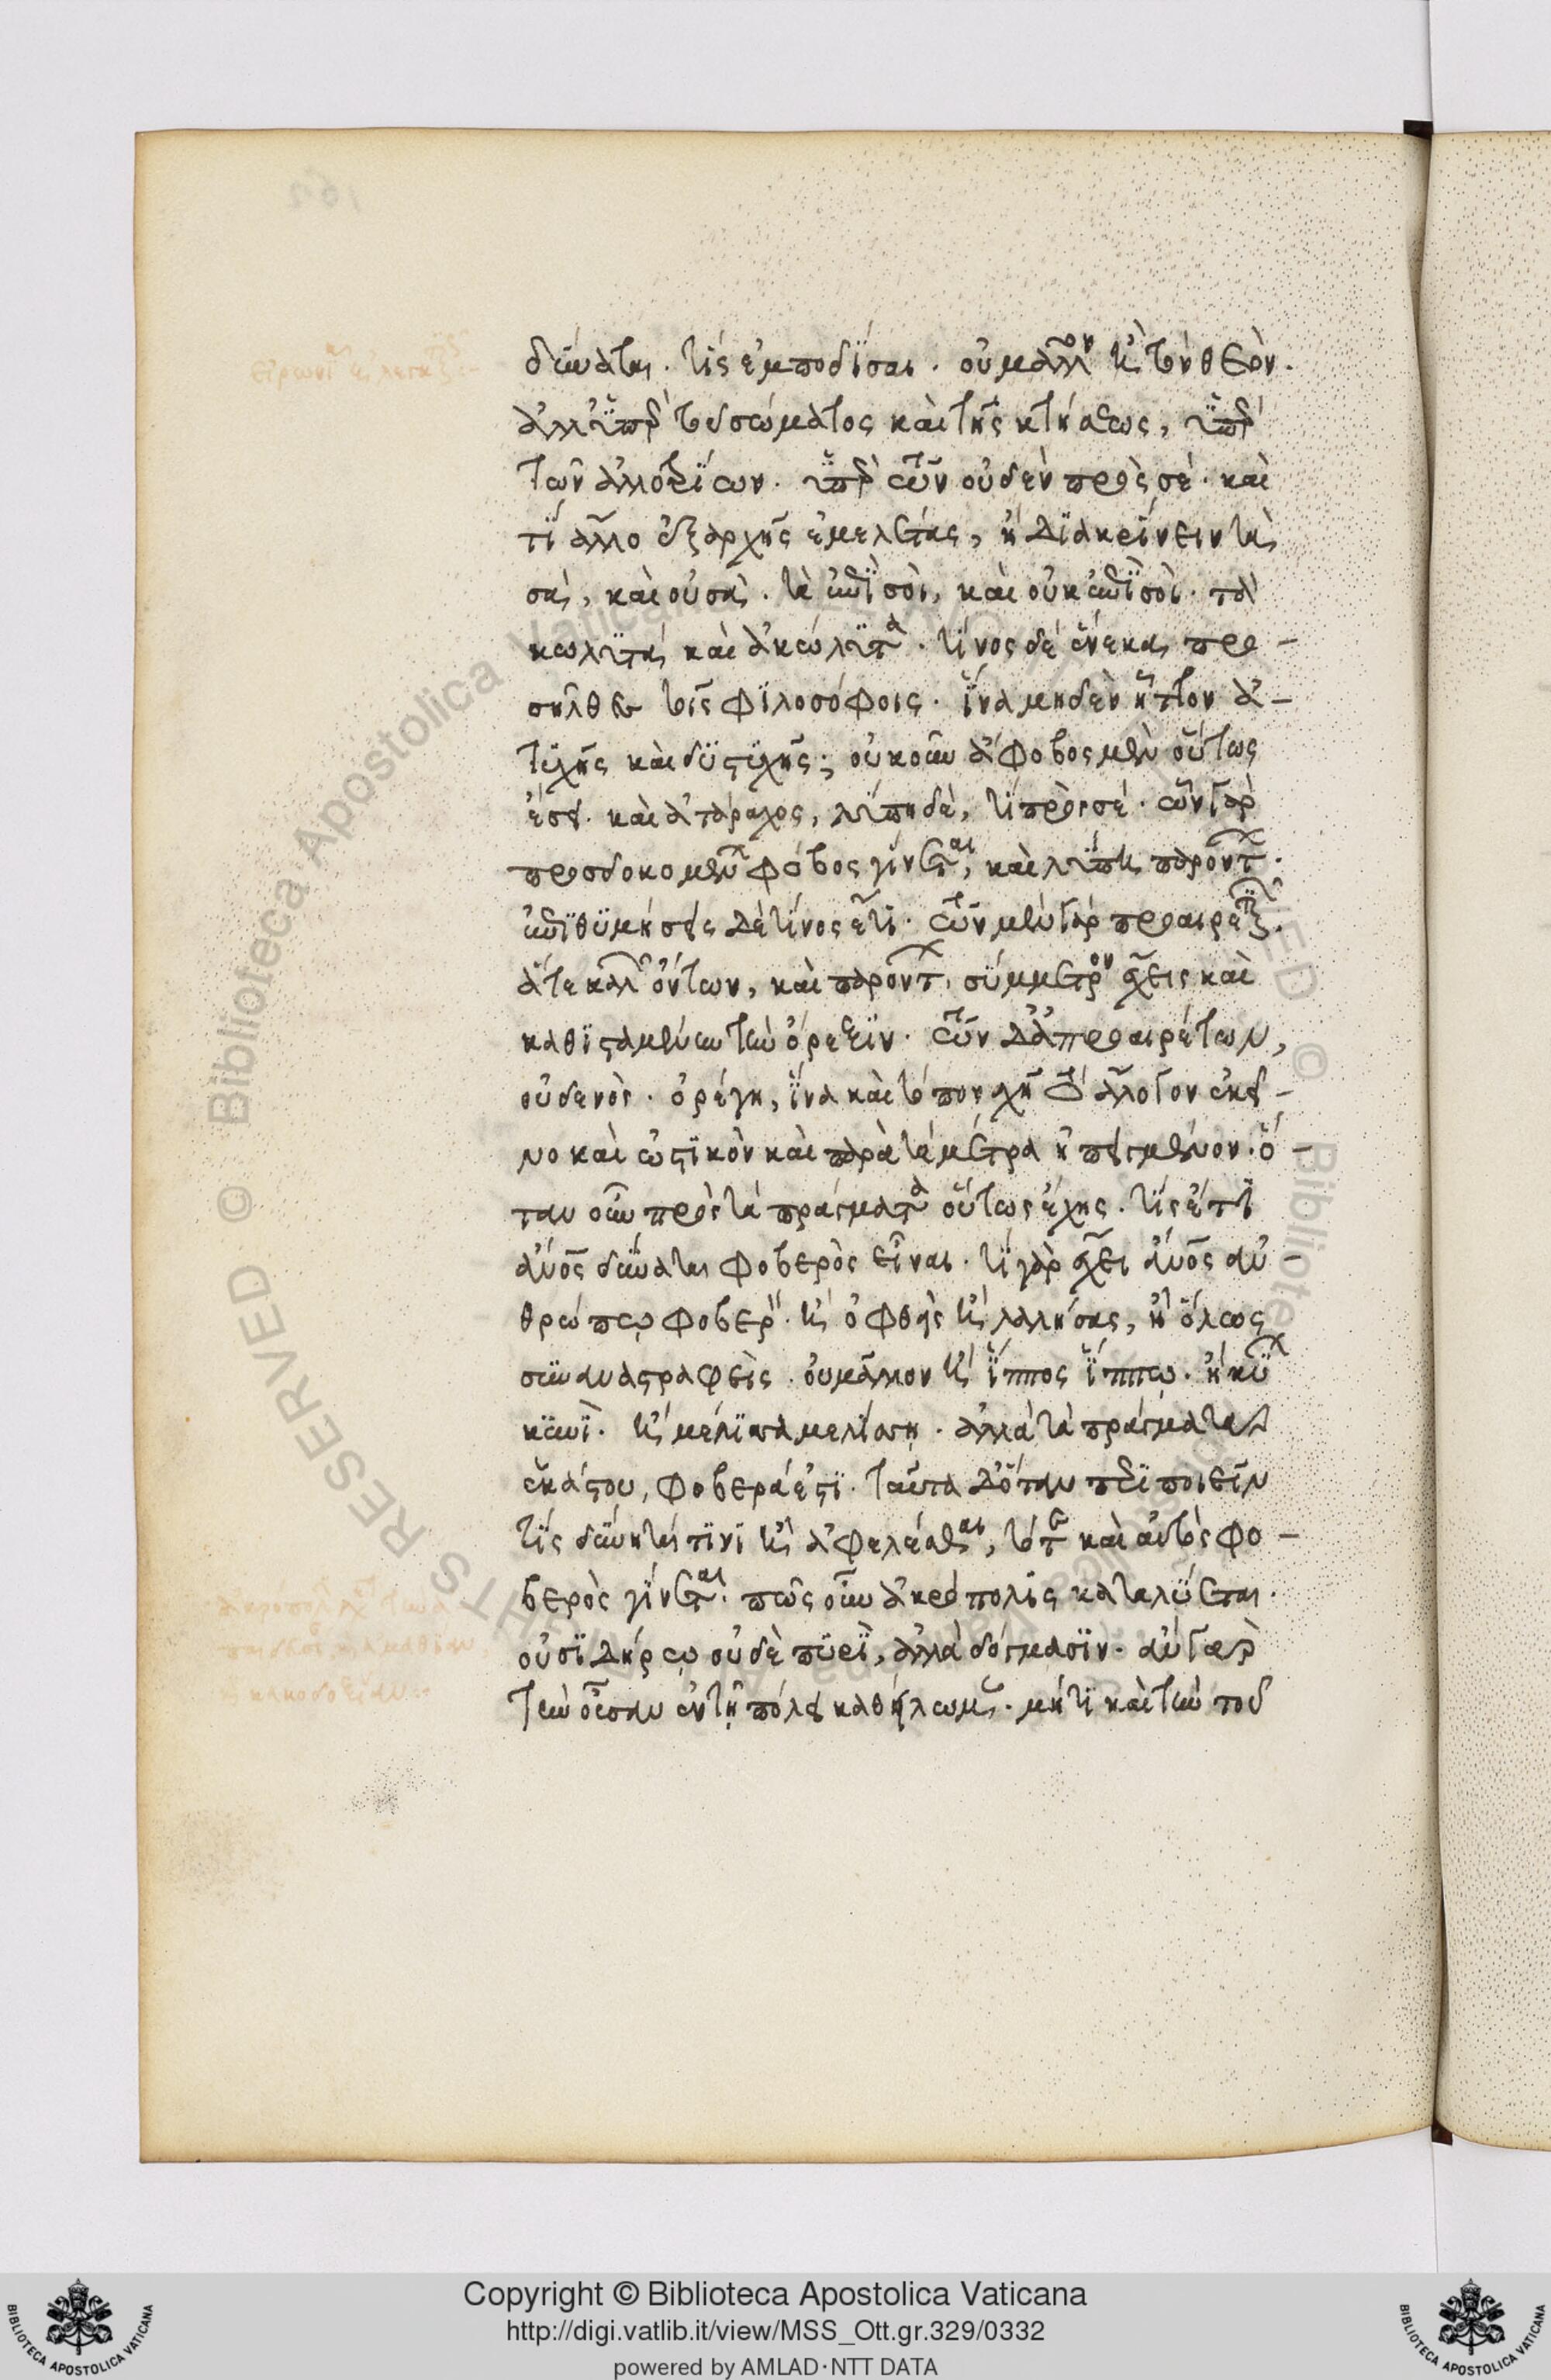 δύναται. τίς ἐμποδίσαι. οὐ μᾶλλον ἢ τὸν θεόν.
ἀλλ' ὑπὲρ τοῦ σώματος καὶ τῆς κτήσεως, ὑπὲρ
τῶν ἀλλοτρίων. ὑπὲρ τῶν οὐδὲν πρὸς σέ. καὶ
τί ἄλλο ἐξαρχῆς ἐμελέτας, ἢ διακρίνειν τὰ
σὰ, καὶ οὐ σά. τὰ ἐπὶ σοὶ, καὶ οὐκ ἐπὶ σοί. τὰ
κωλυτὰ καὶ ἀκώλυτα. τίνος δὲ ἕνεκα προ-
σῆλθες τοῖς φιλοσόφοις. ἵνα μηδὲν ἧττον ἀ-
τυχῇς καὶ δυστυχῇς; οὐκοῦν ἄφοβος μὲν οὕτως
ἔσει. καὶ ἀτάραχος, λύπη δὲ, τί πρὸς σέ. ὧν γὰρ
προσδοκομένων φόβος γίνεται, καὶ λύπη παρόντων.
ἐπιθυμήσεις δὲ τίνος ἔτι. τῶν μὲν γὰρ προαιρετικῶν.
ἅτε καλῶν ὄντων, καὶ παρόντων, σύμμετρον ἔχεις καὶ
καθισταμένην τὴν ὄρεξιν. τῶν δ' ἀπροαιρέτων,
οὐδενὸς. ὀρέγῃ, ἵνα καὶ τόπον σχῇ τὸ ἄλογον ἐκεῖ-
νο καὶ ὠστικὸν καὶ παρὰ τὰ μέτρα ἠπειγμένον. ὅ-
ταν οὖν πρὸς τὰ πράγματα οὕτως ἔχῃς. τίς ἔτι
ἄνος δύναται φοβερὸς εἶναι. τί γὰρ ἔχει ἄνος ἀν-
θρώπῳ φοβερόν. ἢ ὀφθεὶς ἢ λαλήσας, ἢ ὅλως
συναναστραφεὶς. οὐ μᾶλλον ἢ ἵππος ἵππῳ. ἢ κύων
κυνί. ἢ μέλισσα μελίσσῃ. ἀλλὰ τὰ πράγματα
ἑκάστου, φοβερά ἐστι. ταῦτα δ' ὅταν περιποιεῖν
τίς δύνηταί τινι ἢ ἀφελέσθαι, τότε καὶ αὐτὸς φο-
βερὸς γίνεται. πῶς οὖν ἀκρόπολις καταλύεται.
οὐ σιδήρῳ οὐδὲ πυρὶ, ἀλλὰ δόγμασιν. ἂν γὰρ
τὴν οὖσαν ἐν τῇ πόλει καθέλωμεν. μή τι καὶ τὴν τοῦ
Copyright © Biblioteca Apostolica Vaticana
http://digi.vatlib.it/view/MSS_Ott.gr.329/0332
powered by AMLAD·NTT DATA